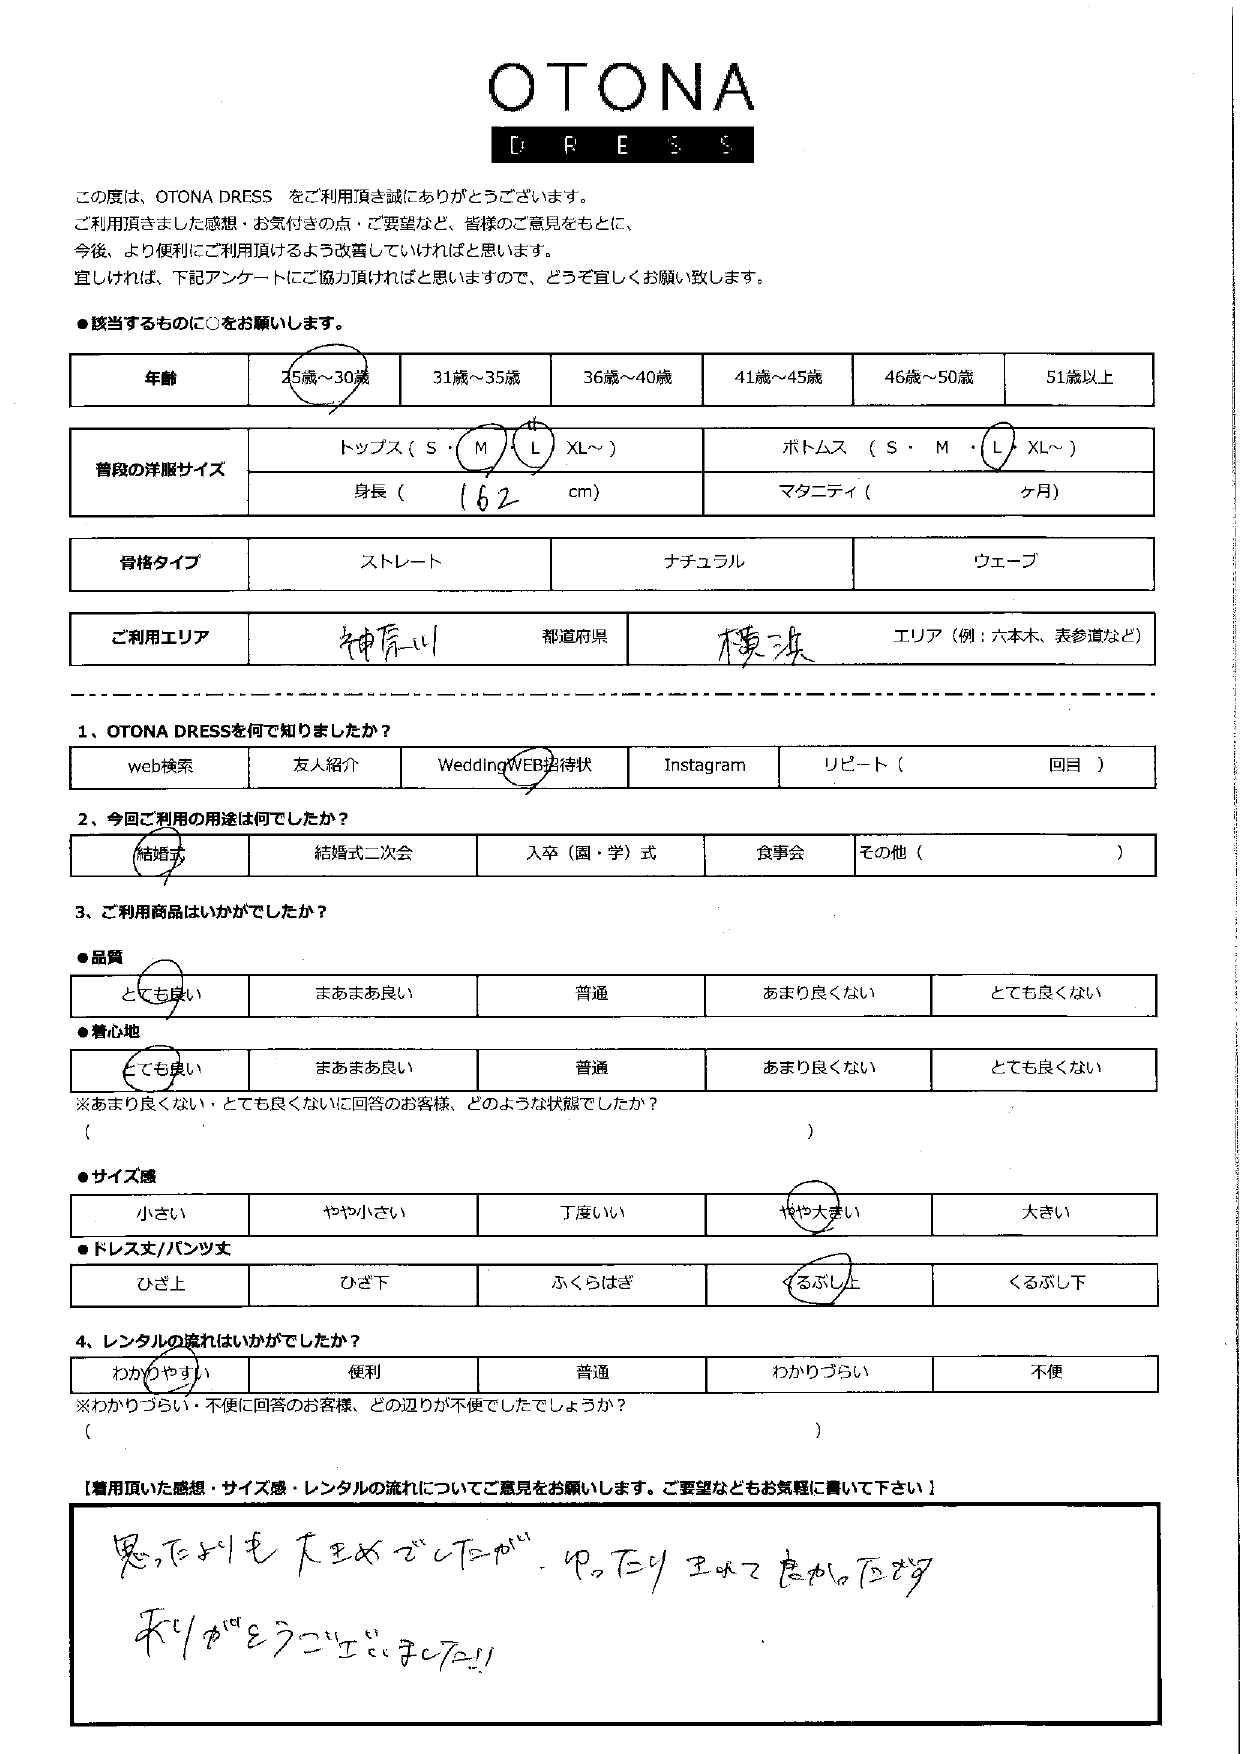 OTONA
DRESS
この度は、OTONA DRESS をご利用頂き誠にありがとうございます。
ご利用頂きました感想・お気付きの点・ご要望など、皆様のご意見をもとに、
今後、より便利にご利用頂けるよう改善していければと思います。
宜しければ、下記アンケートにご協力頂ければと思いますので、どうぞ宜しくお願い致します。
●該当するものに○をお願いします。
年齢 25歳～30歳 31歳～35歳 36歳～40歳 41歳～45歳 46歳～50歳 51歳以上
普段の洋服サイズ トップス ( S ・ M ・ L ・ XL～ ) ボトムス ( S ・ M ・ L ・ XL～ )
身長 ( 162 cm) マタニティ ( ヶ月)
骨格タイプ ストレート ナチュラル ウェーブ
ご利用エリア 神奈川 都道府県 横浜 エリア（例：六本木、表参道など）
1、OTONA DRESSを何で知りましたか？
web検索 友人紹介 WeddingWEB招待状 Instagram リピート（ 回目 ）
2、今回ご利用の用途は何でしたか？
結婚式 結婚式二次会 入卒（園・学）式 食事会 その他（ ）
3、ご利用商品はいかがでしたか？
●品質
とても良い まあまあ良い 普通 あまり良くない とても良くない
●着心地
とても良い まあまあ良い 普通 あまり良くない とても良くない
※あまり良くない・とても良くないに回答のお客様、どのような状態でしたか？
( )
●サイズ感
小さい やや小さい 丁度いい やや大きい 大きい
●ドレス丈/パンツ丈
ひざ上 ひざ下 ふくらはぎ くるぶし上 くるぶし下
4、レンタルの流れはいかがでしたか？
わかりやすい 便利 普通 わかりづらい 不便
※わかりづらい・不便に回答のお客様、どの辺りが不便でしたでしょうか？
( )
【着用頂いた感想・サイズ感・レンタルの流れについてご意見をお願いします。ご要望などもお気軽に書いて下さい】
思ったよりも 大きめでしたが、ゆったり きれて 良かったです
ありがとうございました!!